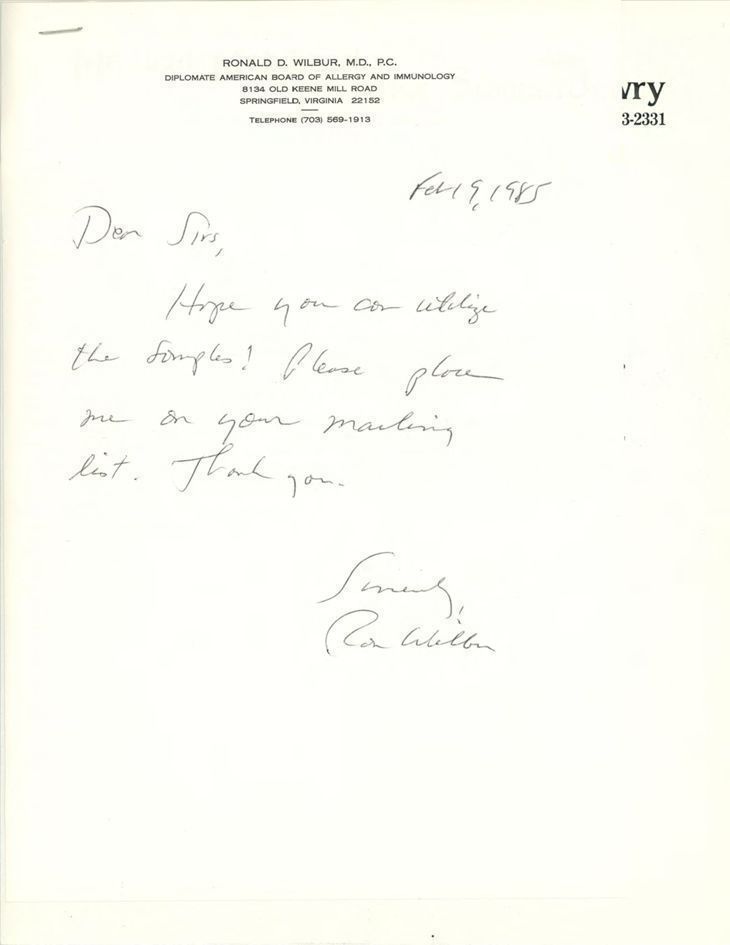 RONALD D. WILBUR, M.D., P.C.
DIPLOMATE AMERICAN BOARD OF ALLERGY AND IMMUNOLOGY
8134 OLD KEENE MILL ROAD
SPRINGFIELD, VIRGINIA 22152
TELEPHONE (703) 569-1913
wry
3-2331
Feb 19, 1985
Dear Sirs,
Hope you can utilize
the samples! Please place
me on your mailing
list. Thank you.
Sincerely,
Ron Wilbur